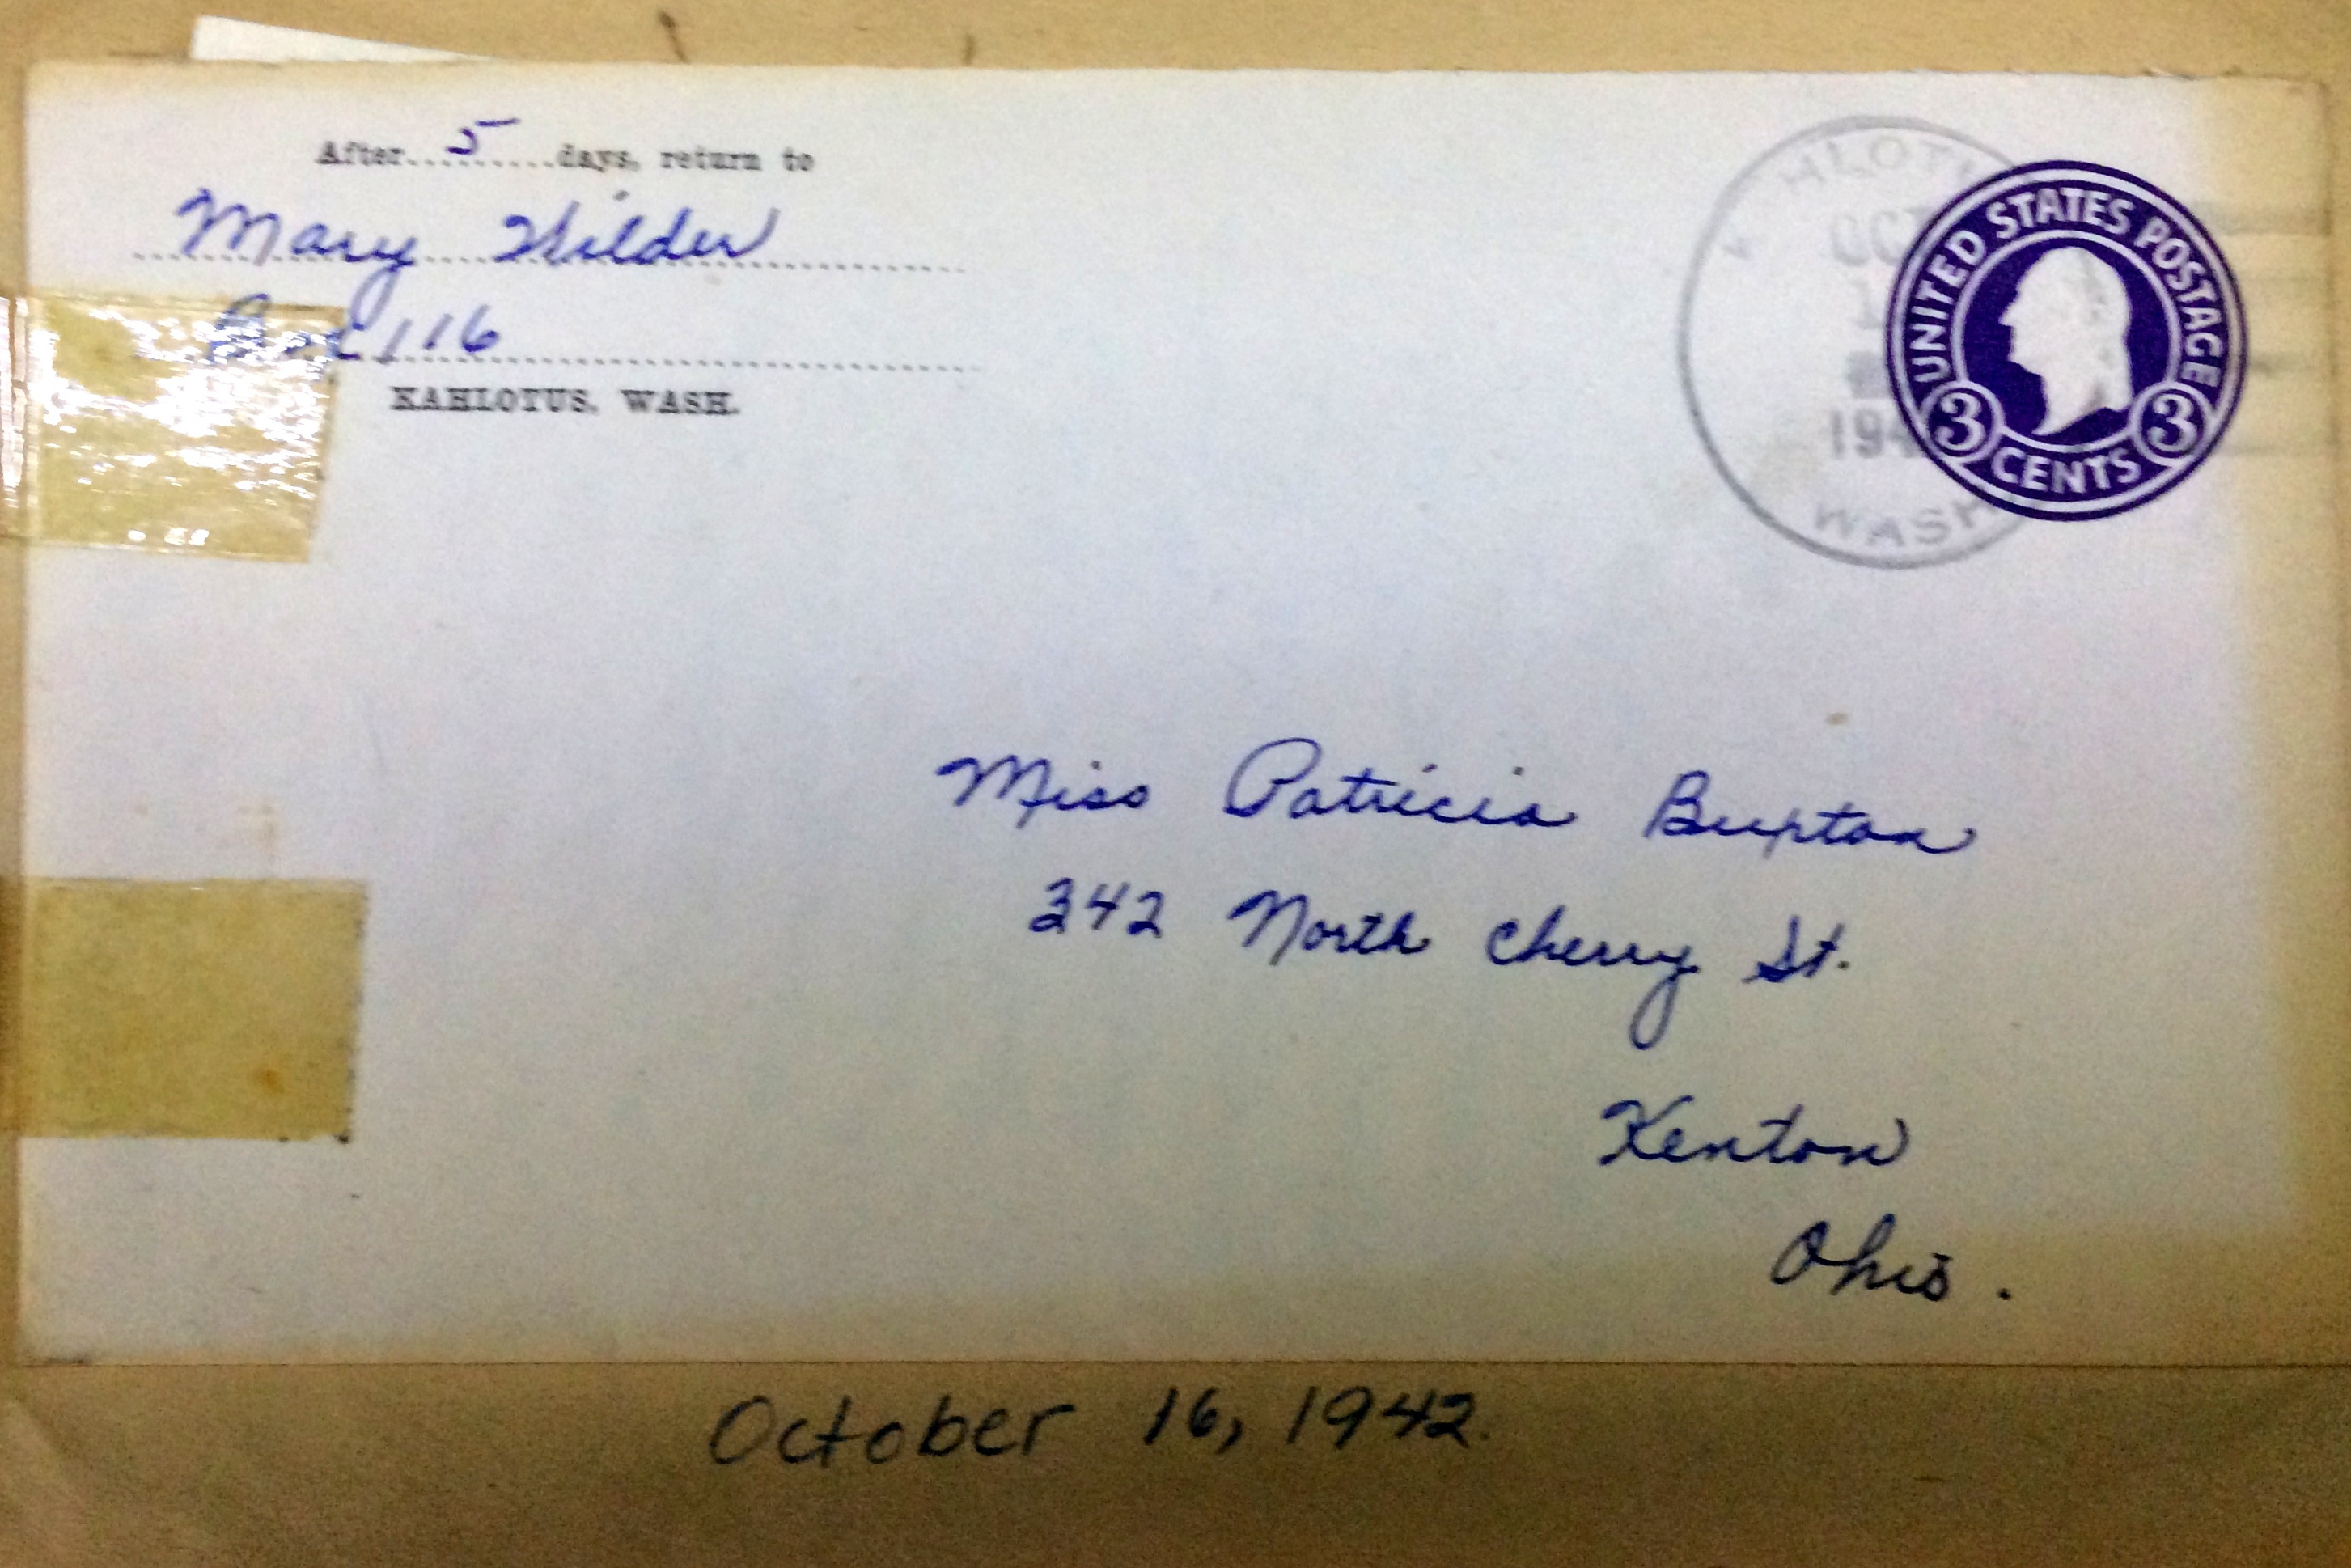 After 5 days, return to
Mary Hilder
Box 116
KAHLOTUS, WASH.
OCT
194
WASH
UNITED STATES POSTAGE
3 CENTS 3
Miss Patricia Buxton
342 North Cherry St.
Kenton
Ohio.
October 16, 1942.